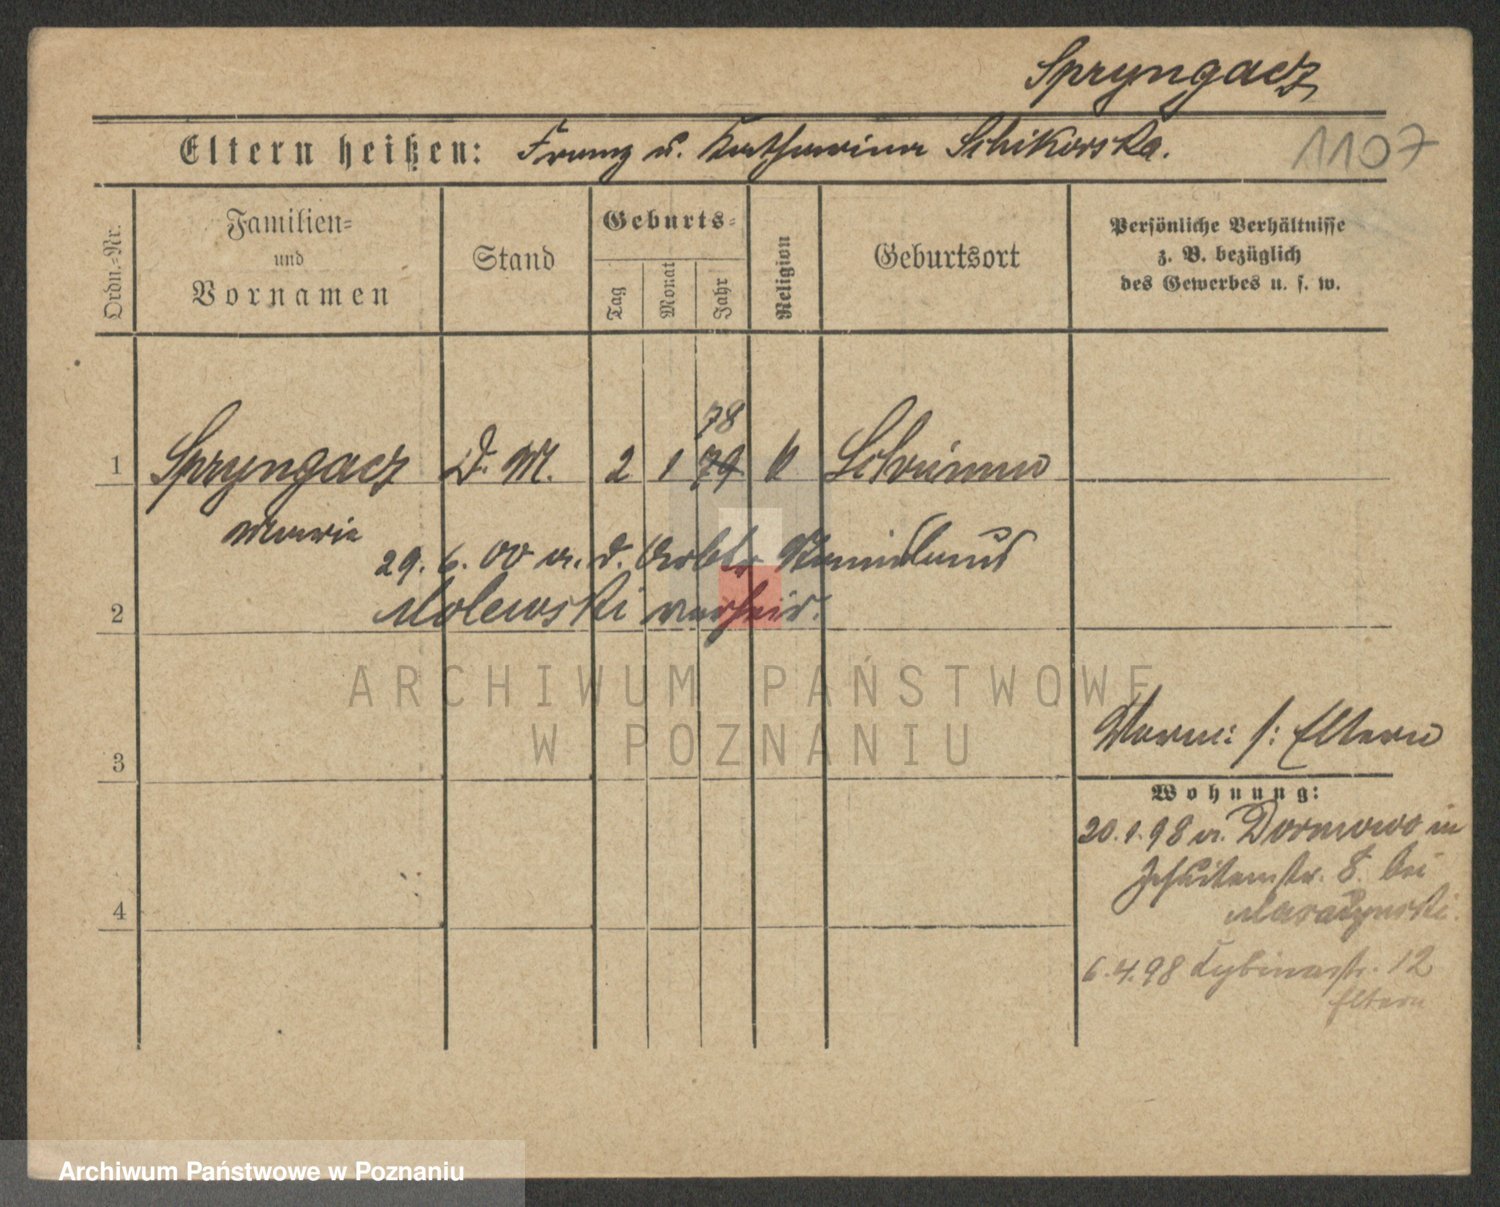 Spryngacz
Eltern heißen: Franz u. Katharina Schikorska.
1107
Ordn.-Nr.
Familien=
und
Vornamen
Stand
Geburts=
Tag
Monat
Jahr
Religion
Geburtsort
Persönliche Verhältnisse
z. B. bezüglich
des Gewerbes u. s. w.
78
1 Spryngacz D. M. 2 1 79 k Schrimm
Marie
29. 6. 00 m. d. Arbtr
2 Molewski verheir.
ARCHIWUM PAŃSTWOWE
W POZNANIU
3
Eltern
Wohnung:
20.1.98 v. Dormowo in
Jesuitenstr. 8. bei
4
6.4.98 Cybinastr. 12
Eltern
Archiwum Państwowe w Poznaniu